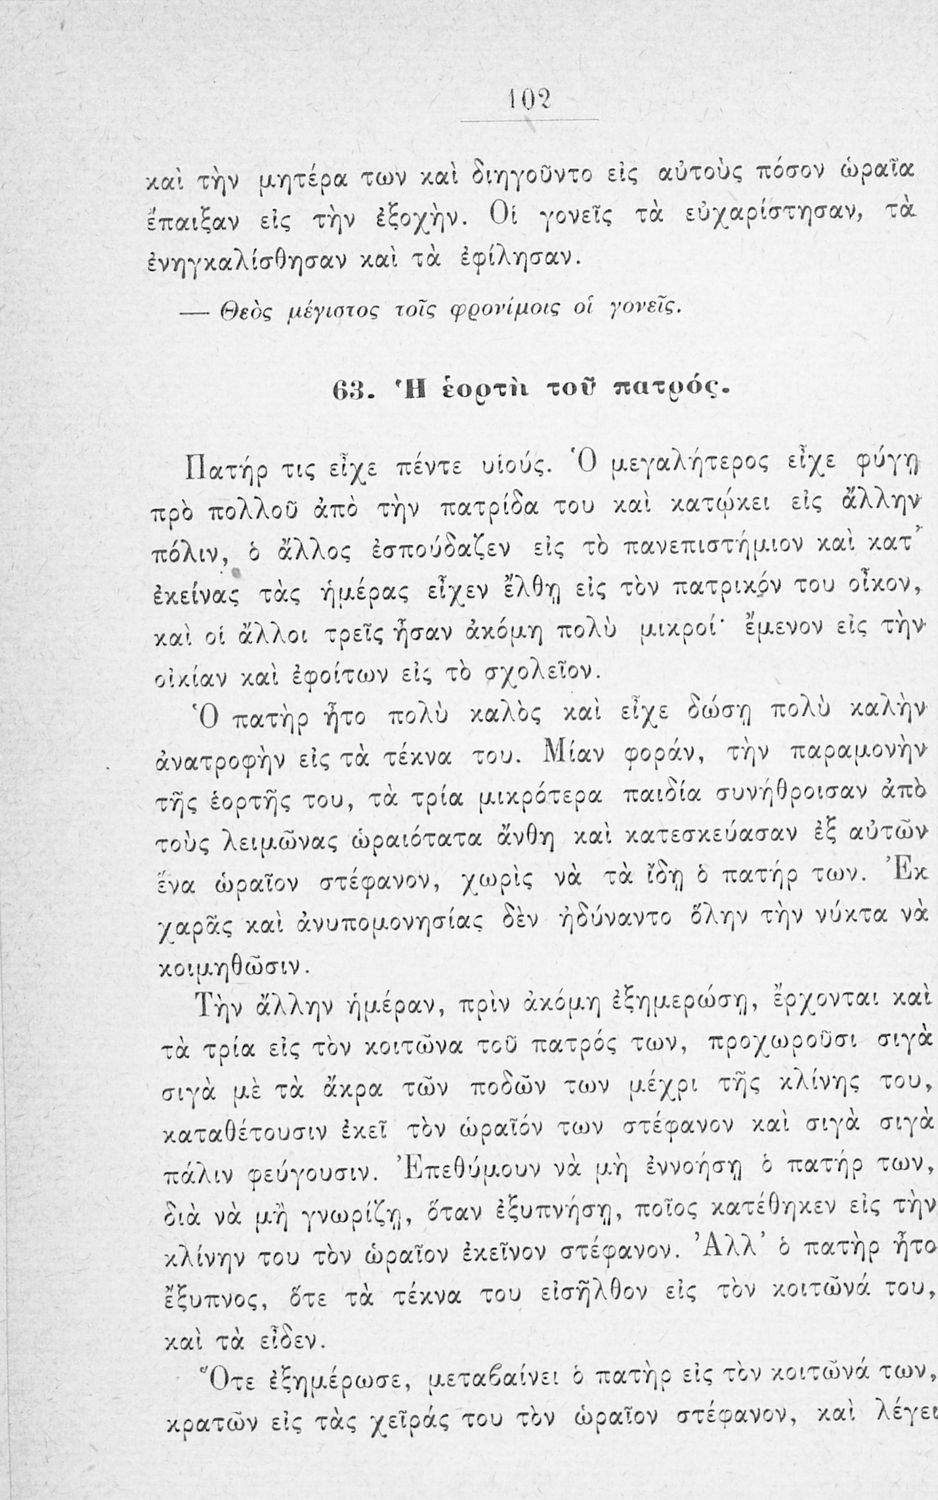 102
καὶ τὴν μητέρα των καὶ διηγοῦντο εἰς αὐτοὺς πόσον ὡραῖα
ἔπαιξαν εἰς τὴν ἐξοχὴν. Οἱ γονεῖς τὰ εὐχαρίστησαν, τὰ
ἐνηγκαλίσθησαν καὶ τὰ ἐφίλησαν.
— Θεὸς μέγιστος τοῖς φρονίμοις οἱ γονεῖς.
63. Ἡ ἑορτὴ τοῦ πατρός.
Πατήρ τις εἶχε πέντε υἱούς. Ὁ μεγαλήτερος εἶχε φύγῃ
πρὸ πολλοῦ ἀπὸ τὴν πατρίδα του καὶ κατῴκει εἰς ἄλλην
πόλιν, ὁ ἄλλος ἐσπούδαζεν εἰς τὸ πανεπιστήμιον καὶ κατ’
ἐκείνας τὰς ἡμέρας εἶχεν ἔλθῃ εἰς τὸν πατρικόν του οἶκον,
καὶ οἱ ἄλλοι τρεῖς ἦσαν ἀκόμη πολὺ μικροί· ἔμενον εἰς τὴν
οἰκίαν καὶ ἐφοίτων εἰς τὸ σχολεῖον.
Ὁ πατὴρ ἦτο πολὺ καλὸς καὶ εἶχε δώσῃ πολὺ καλὴν
ἀνατροφὴν εἰς τὰ τέκνα του. Μίαν φοράν, τὴν παραμονὴν
τῆς ἑορτῆς του, τὰ τρία μικρότερα παιδία συνήθροισαν ἀπὸ
τοὺς λειμῶνας ὡραιότατα ἄνθη καὶ κατεσκεύασαν ἐξ αὐτῶν
ἕνα ὡραῖον στέφανον, χωρὶς νὰ τὰ ἴδῃ ὁ πατήρ των. Ἐκ
χαρᾶς καὶ ἀνυπομονησίας δὲν ἠδύναντο ὅλην τὴν νύκτα νὰ
κοιμηθῶσιν.
Τὴν ἄλλην ἡμέραν, πρὶν ἀκόμη ἐξημερώσῃ, ἔρχονται καὶ
τὰ τρία εἰς τὸν κοιτῶνα τοῦ πατρός των, προχωροῦσι σιγὰ
σιγὰ μὲ τὰ ἄκρα τῶν ποδῶν των μέχρι τῆς κλίνης του,
καταθέτουσιν ἐκεῖ τὸν ὡραῖόν των στέφανον καὶ σιγὰ σιγὰ
πάλιν φεύγουσιν. Ἐπεθύμουν νὰ μὴ ἐννοήσῃ ὁ πατήρ των,
διὰ νὰ μὴ γνωρίζῃ, ὅταν ἐξυπνήσῃ, ποῖος κατέθηκεν εἰς τὴν
κλίνην του τὸν ὡραῖον ἐκεῖνον στέφανον. Ἀλλ’ ὁ πατὴρ ἦτο
ἔξυπνος, ὅτε τὰ τέκνα του εἰσῆλθον εἰς τὸν κοιτῶνά του,
καὶ τὰ εἶδεν.
Ὅτε ἐξημέρωσε, μεταβαίνει ὁ πατὴρ εἰς τὸν κοιτῶνά των,
κρατῶν εἰς τὰς χεῖράς του τὸν ὡραῖον στέφανον, καὶ λέγει